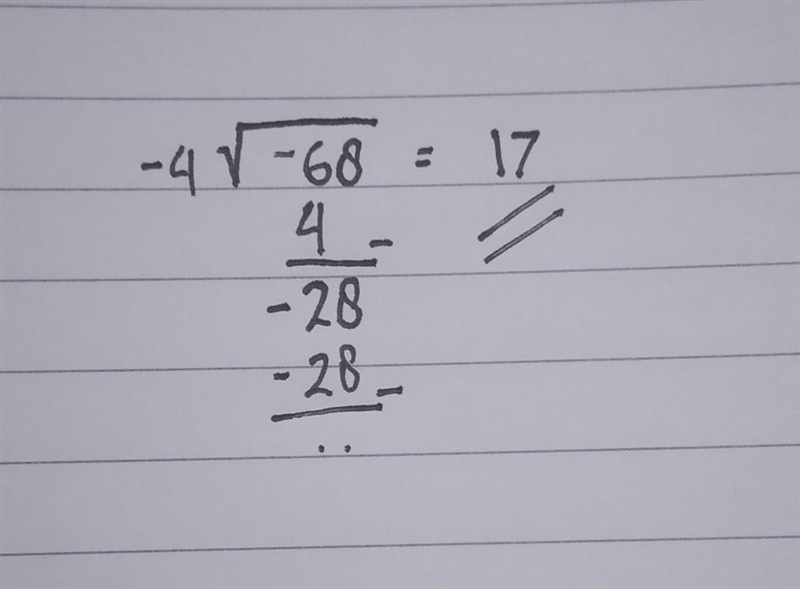 -4 √-68 = 17
4 -
-28
-28 -
..